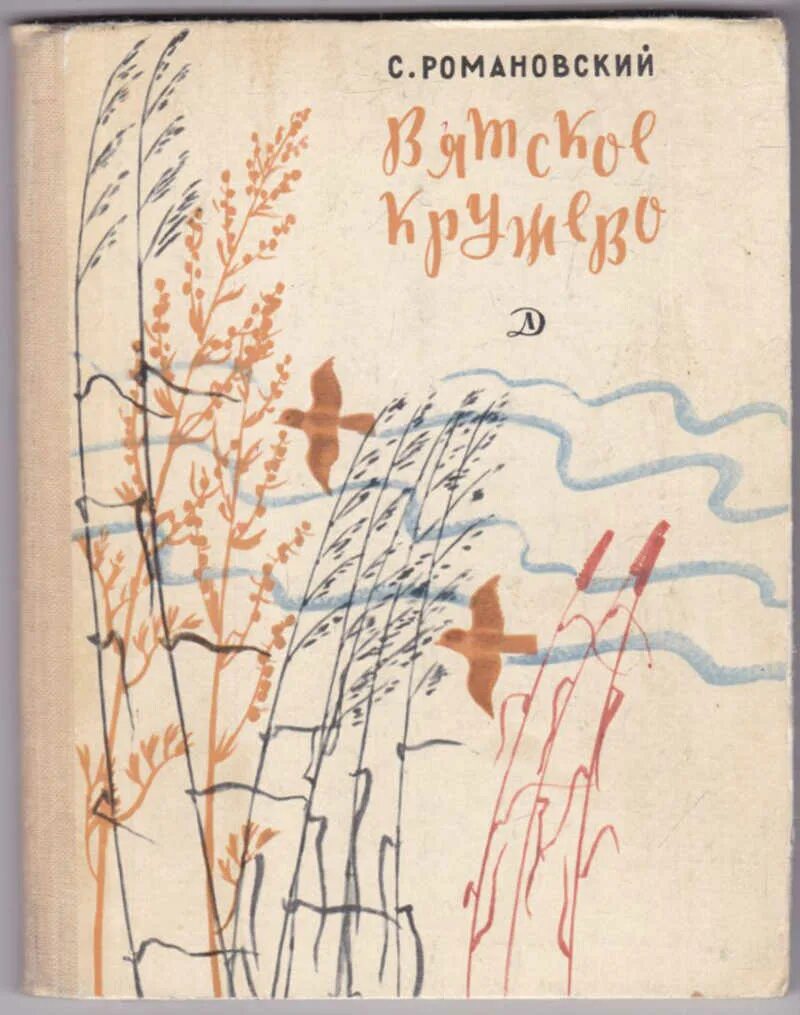 С. РОМАНОВСКИЙ
Вятское
кружево
ДЛ